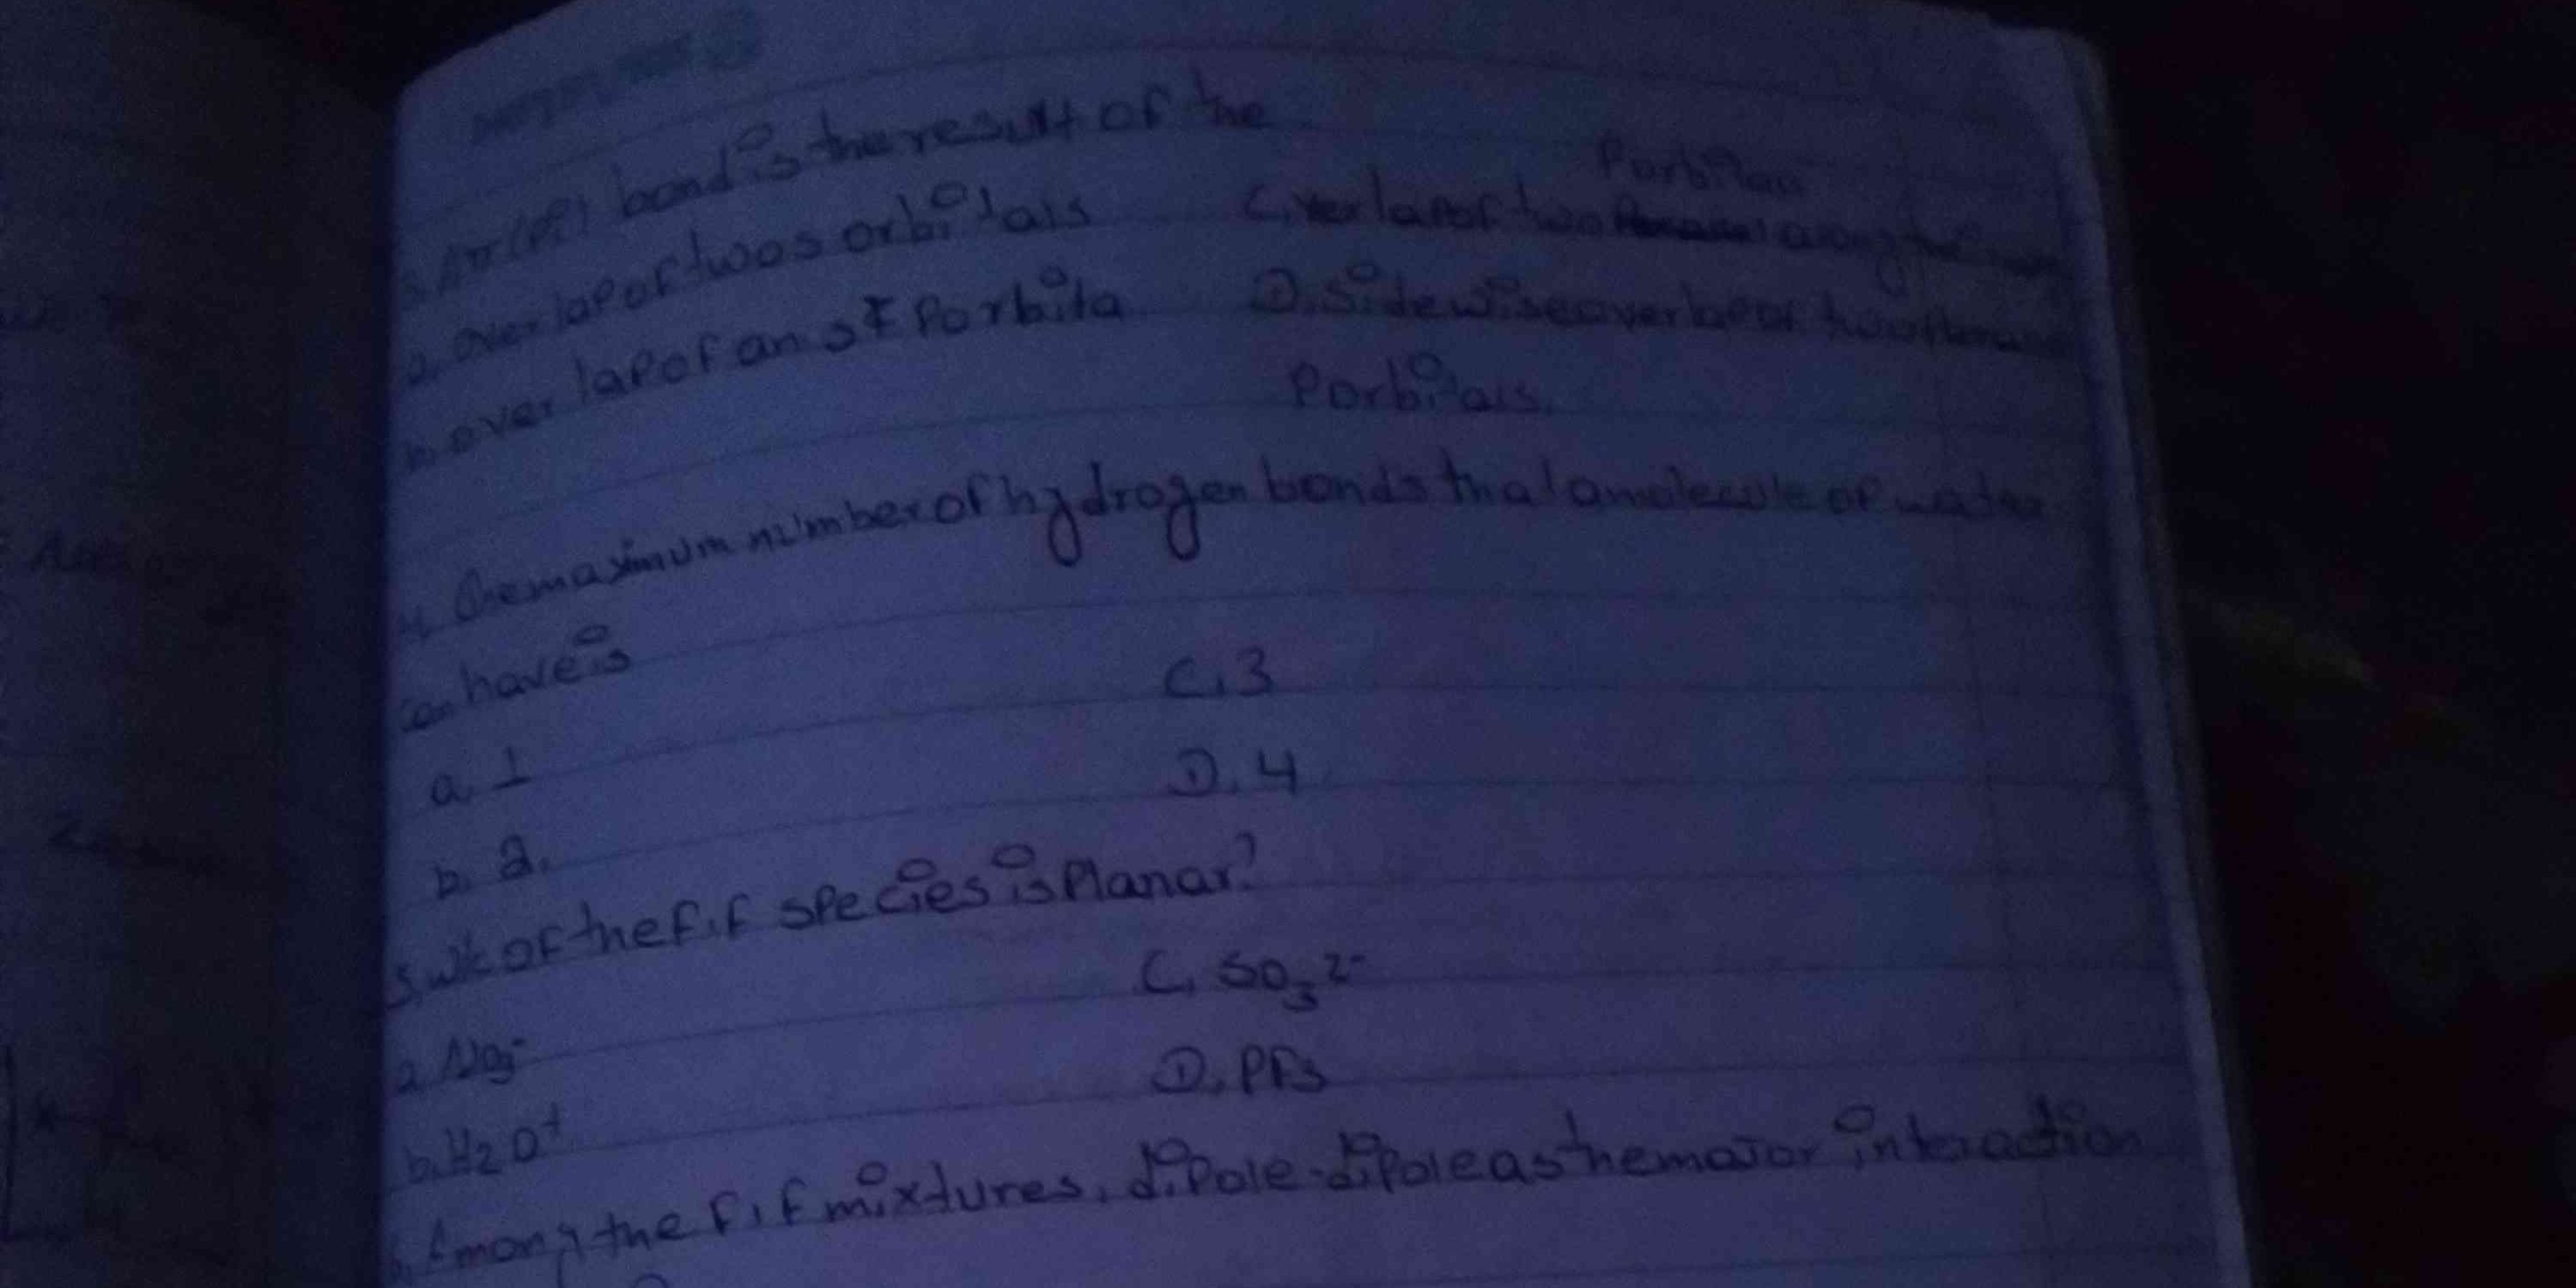 3. A π (Pi) bond is the result of the
a. over lap of two s orbitals
b. over lap of an s & P orbita
C. over lap of two along the
P orbitals
D. Side wise overlap of two
P orbitals.
4. The maximum number of hydrogen bonds that a molecule of water
can have is
a. 1
b. 2.
C. 3
D. 4
5. wc of the f.f species is Planar?
a. No3-
b. H2O+
C. SO3 2-
D. PF3
6. Among the f.f mixtures, dipole-dipole as the major interaction